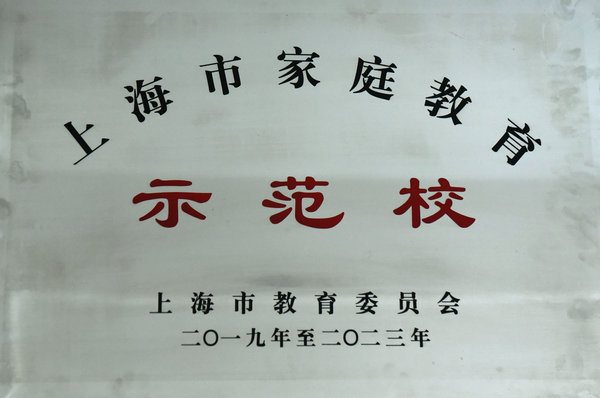 上海市家庭教育
示范校
上海市教育委员会
二〇一九年至二〇二三年